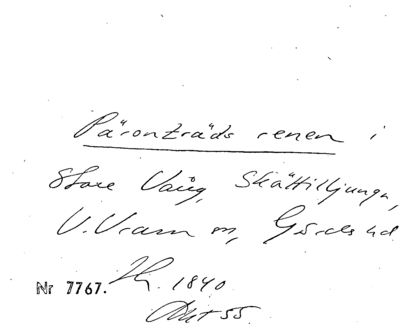 Päronträds renen i
Store Vång, Skättilljunga,
V. Vram m, Gärds hd
Nr 7767. 1840